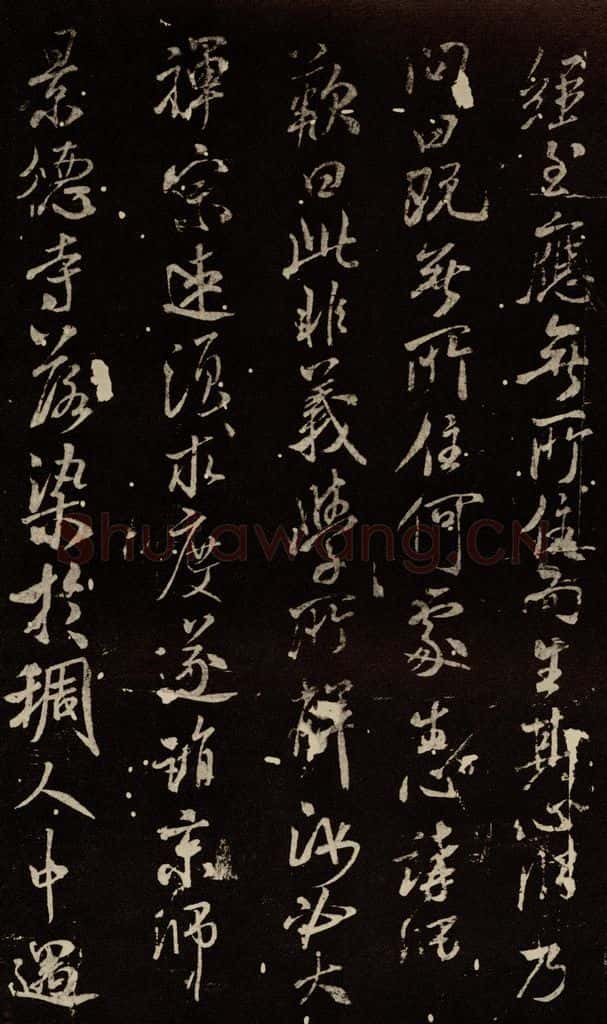 經至應無所住而生其心清乃
問曰既無所住何處生心講師
歎曰此非義學所解汝必大
禪宗速須求度遂詣京師
景德寺落染於稠人中遇
Shufawang.CN